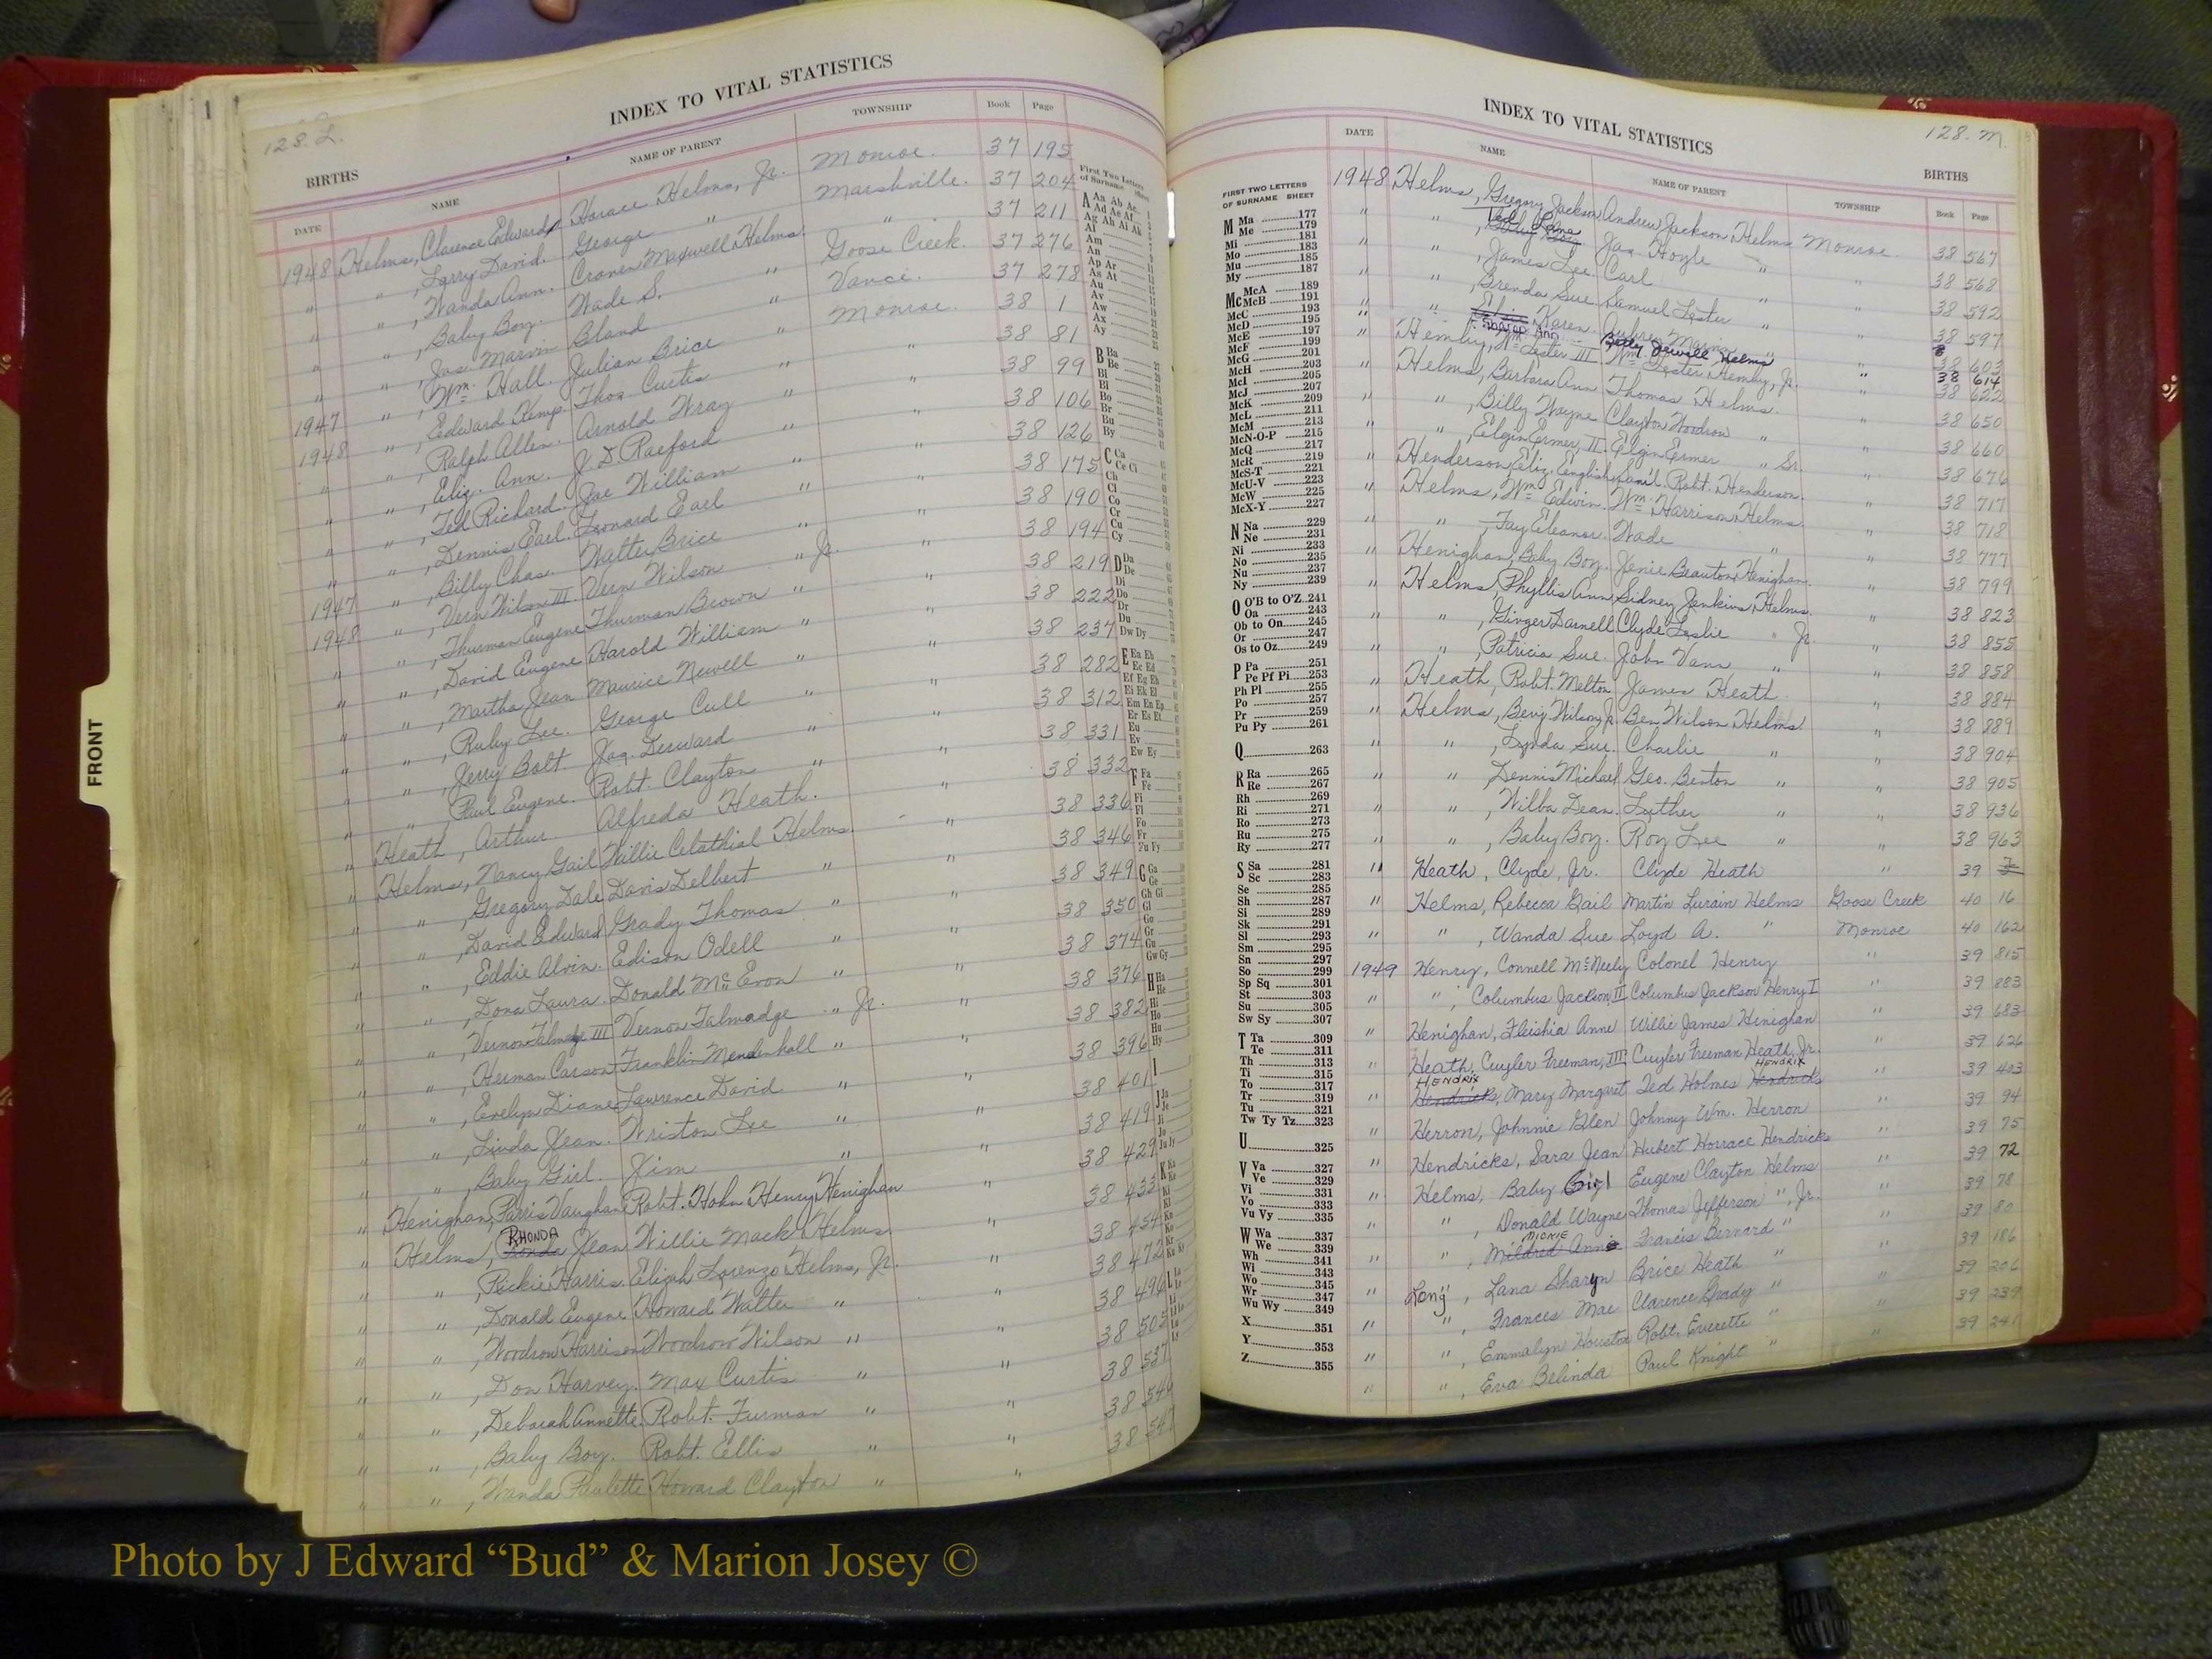 128 L.
INDEX TO VITAL STATISTICS
BIRTHS
DATE NAME NAME OF PARENT TOWNSHIP Book Page
1948 Helms, Clarence Edward Horace Helms, Jr. Monroe. 37 195
" " , Larry David. George " Marshville. 37 204
" " , Wanda Ann. Craven Maxwell Helms. " 37 211
" " , Baby Boy. Wade S. " Goose Creek. 37 276
" " , Jas. Marvin Bland " Vance. 37 278
" " , Wm. Hall. Julian Brice " Monroe. 38 1
1947 " , Edward Kemp. Thos. Curtis " " 38 81
1948 " , Ralph Allen. Arnold Wray " " 38 99
" " , Eliz. Ann. J. D. Raeford " " 38 106
" " , Ted Richard. Joe William " " 38 126
" " , Dennis Earl. Leonard Earl " " 38 175
" " , Billy Chas. Walter Brice " " 38 190
1947 " , Vern Wilson III Vern Wilson " Jr. " 38 194
1948 " , Thurman Eugene Thurman Brown " " 38 219
" " , David Eugene Harold William " " 38 222
" " , Martha Jean Maurice Newell " " 38 237
" " , Ruby Lee. George Cull " " 38 282
" " , Jerry Bolt. Jas. Derward " " 38 312
" " , Paul Eugene. Robt. Clayton " " 38 331
" Heath, Arthur. Alfreda Heath. " 38 332
" Helms, Nancy Gail Willie Celathial Helms. " 38 336
" " , Gregory Dale Davis Delbert " " 38 346
" " , David Edward Grady Thomas " " 38 349
" " , Eddie Alvin. Edison Odell " " 38 350
" " , Dona Laura. Donald McEvon " " 38 374
" " , Vernon Talmadge III Vernon Talmadge " Jr. " 38 376
" " , Herman Carson Franklin Mendenhall " " 38 382
" " , Evelyn Diane Lawrence David " " 38 396
" " , Linda Jean. Wriston Lee " " 38 401
" " , Baby Girl. Jim " " 38 419
" Henighan, Parris Vaughan Robt. John Henry Henighan " 38 429
" Helms, RHONDA Jean Willie Mack Helms " 38 433
" " , Rickie Harris. Elijah Lorenzo Helms, Jr. " 38 454
" " , Donald Eugene Howard Walter " " 38 472
" " , Woodrow Harrison Woodrow Wilson " " 38 496
" " , Don Harvey. Max Curtis " " 38 502
" " , Deborah Annette. Robt. Furman " " 38 537
" " , Baby Boy. Robt. Ellis " " 38 546
" " , Wanda Paulette Howard Clayton " " 38 547
FRONT
First Two Letters
of Surname Sheet
128. M.
INDEX TO VITAL STATISTICS
BIRTHS
DATE NAME NAME OF PARENT TOWNSHIP Book Page
1948 Helms, Gregory Jackson Andrew Jackson Helms Monroe. 38 567
" " , Jas. Hoyle " " 38 568
" " , James Lee. Carl " " 38 592
" " , Brenda Sue. Samuel Lester " " 38 597
" " , Karen. " 38 603
Sharon Ann Betty Jewell Helms " 38 614
" Hemby, Wm. Lester III Wm. Lester Hemby, Jr. " 38 622
" Helms, Barbara Ann Thomas Helms. " 38 650
" " , Billy Wayne Clayton Woodrow " " 38 660
" " , Elgin Ermer, II. Elgin Ermer " Sr. " 38 676
" Henderson, Eliz. English Robt. Henderson. " 38 717
" Helms, Wm. Edwin. Wm. Harrison Helms. " 38 718
" " , Fay Eleanor. Wade " " 38 777
" Henighan, Baby Boy. Henighan. " 38 799
" Helms, Phyllis Ann Sidney Jenkins Helms. " 38 823
" " , Ginger Darnell Clyde Leslie " Jr. " 38 855
" " , Patricia Sue. John Vann " " 38 858
" Heath, Robt. Melton James Heath. " 38 884
" Helms, Benj. Wilson, Jr. Ben Wilson Helms " 38 889
" " , Lynda Sue. Charlie " " 38 904
" " , Dennis Michael Geo. Benton " " 38 905
" " , Wilba Dean. Luther " " 38 936
" " , Baby Boy. Roy Lee " " 38 963
" Heath, Clyde, Jr. Clyde Heath " 39
" Helms, Rebecca Gail Martin Lurain Helms Goose Creek 40 16
" " , Wanda Sue Loyd A. " Monroe 40 162
1949 Henry, Connell McNeely Colonel Henry " 39 815
" " , Columbus Jackson, II Columbus Jackson Henry I " 39 883
" Henighan, Fleishia Anne Willie James Henighan " 39 683
" Heath, Cuyler Freeman, III Cuyler Freeman Heath, Jr. " 39 626
HENDRIX HENDRIX
" Hendricks, Mary Margaret Ted Holmes Hendricks " 39 403
" Herron, Johnnie Glen Johnny Wm. Herron " 39 94
" Hendricks, Sara Jean Hubert Horrace Hendricks " 39 75
" Helms, Baby Girl Eugene Clayton Helms " 39 72
" " , Donald Wayne Thomas Jefferson ", Jr. " 39 78
MICKIE
" " , Mildred Annie Francis Bernard " " 39 80
" Long , Lana Sharyn Brice Heath " " 39 186
" " , Frances Mae Clarence Grady " " 39 206
" " , Emmalyn Houston Robt. Everette " " 39 239
" " , Eva Belinda Paul Knight " 39 241
FIRST TWO LETTERS
OF SURNAME SHEET
M Ma 177
Me 179
Mi 181
Mo 183
Mu 185
My 187
Mc McA 189
McB 191
McC 193
McD 195
McE 197
McF 199
McG 201
McH 203
McI 205
McJ 207
McK 209
McL 211
McM 213
McN-O-P 215
McQ 217
McR 219
McS-T 221
McU-V 223
McW 225
McX-Y 227
N Na 229
Ne 231
Ni 233
No 235
Nu 237
Ny 239
O O'B to O'Z 241
Oa 243
Ob to On 245
Or 247
Os to Oz 249
P Pa 251
Pe Pf Pi 253
Ph Pl 255
Po 257
Pr 259
Pu Py 261
Q 263
R Ra 265
Re 267
Rh 269
Ri 271
Ro 273
Ru 275
Ry 277
S Sa 281
Sc 283
Se 285
Sh 287
Si 289
Sk 291
Sl 293
Sm 295
Sn 297
So 299
Sp Sq 301
St 303
Su 305
Sw Sy 307
T Ta 309
Te 311
Th 313
Ti 315
To 317
Tr 319
Tu 321
Tw Ty Tz 323
U 325
V Va 327
Ve 329
Vi 331
Vo 333
Vu Vy 335
W Wa 337
We 339
Wh 341
Wi 343
Wo 345
Wr 347
Wu Wy 349
X 351
Y 353
Z 355
Photo by J Edward “Bud” & Marion Josey ©